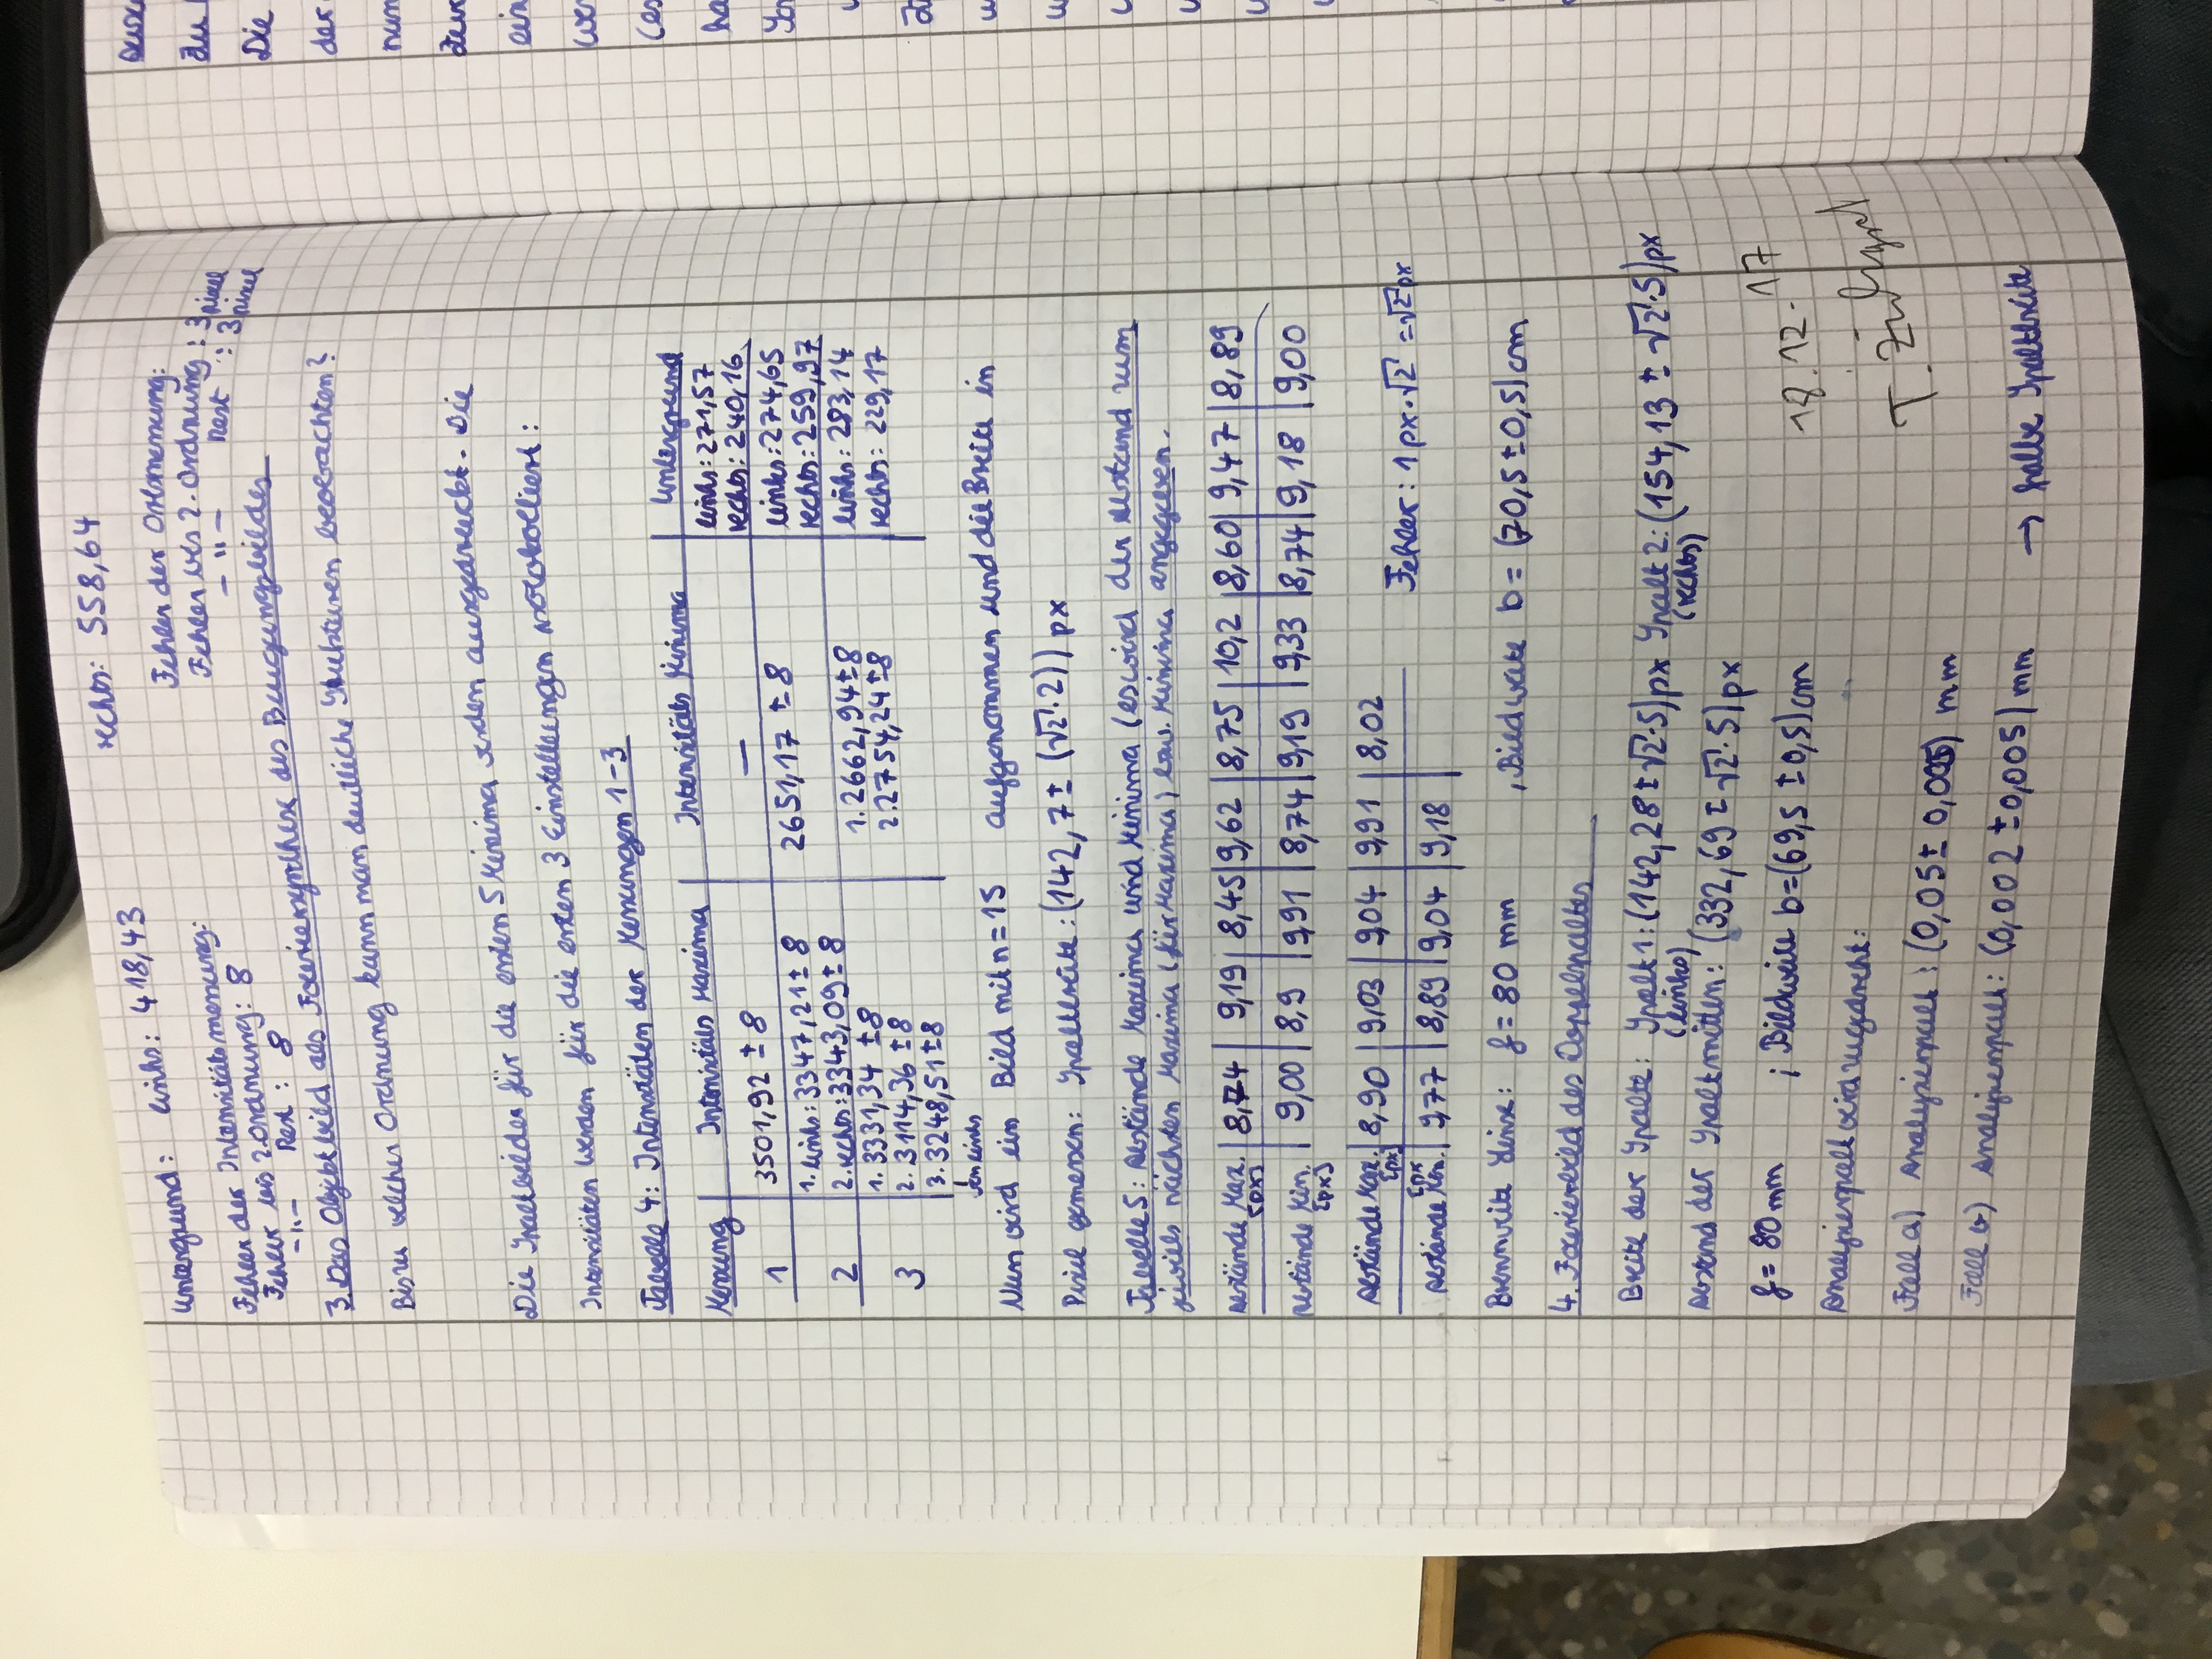 Untergrund: links: 418,43 rechts: 558,64
Fehler der Intensitätsmessung: Fehler der Ortsmessung:
Fehler bis 2. Ordnung: 8 Fehler bis 2. Ordnung: 3 pixel
-"- Rest: 8 -"- Rest: 3 pixel
3. Das Objektbild als Fouriersynthese des Beugungsbildes
Bis zu welcher Ordnung kann man deutliche Strukturen beobachten?
Die Spaltbilder für die ersten 5 Minima werden ausgedruckt. Die
Intensitäten werden für die ersten 3 Einstellungen protokolliert:
Tabelle 4: Intensitäten der Messungen 1-3
Messung Intensitäts Maxima Intensitäts Minima Untergrund
1 3501,92 ± 8 — links: 271,57
rechts: 240,16
2 1. links: 3347,21 ± 8 2651,17 ± 8 links: 274,65
2. rechts: 3343,09 ± 8 rechts: 259,97
3 1. 3331,34 ± 8 1. 2662,94 ± 8 links: 283,14
2. 3114,36 ± 8 2. 2754,24 ± 8 rechts: 229,17
3. 3248,51 ± 8
links
Nun wird ein Bild mit n=15 aufgenommen und die Breite in
Pixel gemessen: Spaltbreite: (142,7 ± (√2·2)) px
Tabelle 5: Abstände Maxima und Minima (es wird der Abstand zum
jeweils nächsten Maxima (für Maxima) bzw. Minima angegeben.
Abstände Max. [px] 8,74 9,19 8,45 9,62 8,75 10,2 8,60 9,47 8,89
Abstände Min. [px] 9,00 8,9 9,91 8,74 9,19 9,33 8,74 9,18 9,00
Abstände Max. [px] 8,90 9,03 9,04 9,91 8,02
Abstände Min. [px 9,77 8,89 9,04 9,18 Fehler: 1 px·√2 = √2 px
Brennweite Linse: f = 80 mm , Bildweite b = (70,5 ± 0,5) cm
4. Fourierbild des Doppelspaltes
Breite der Spalte: Spalt 1: (142,28 ± √2·5) px Spalt 2: (154,13 ± √2·5) px
(links) (rechts)
Abstand der Spaltmitten: (332,69 ± √2·5) px
f = 80 mm ; Bildweite b = (69,5 ± 0,5) cm
18.12.17
Analysierspalt wird zugedreht:
T.
Fall a) Analysierspalt: (0,05 ± 0,005) mm
Fall b) Analysierspalt: (0,002 ± 0,005) mm → halbe Spaltbreite